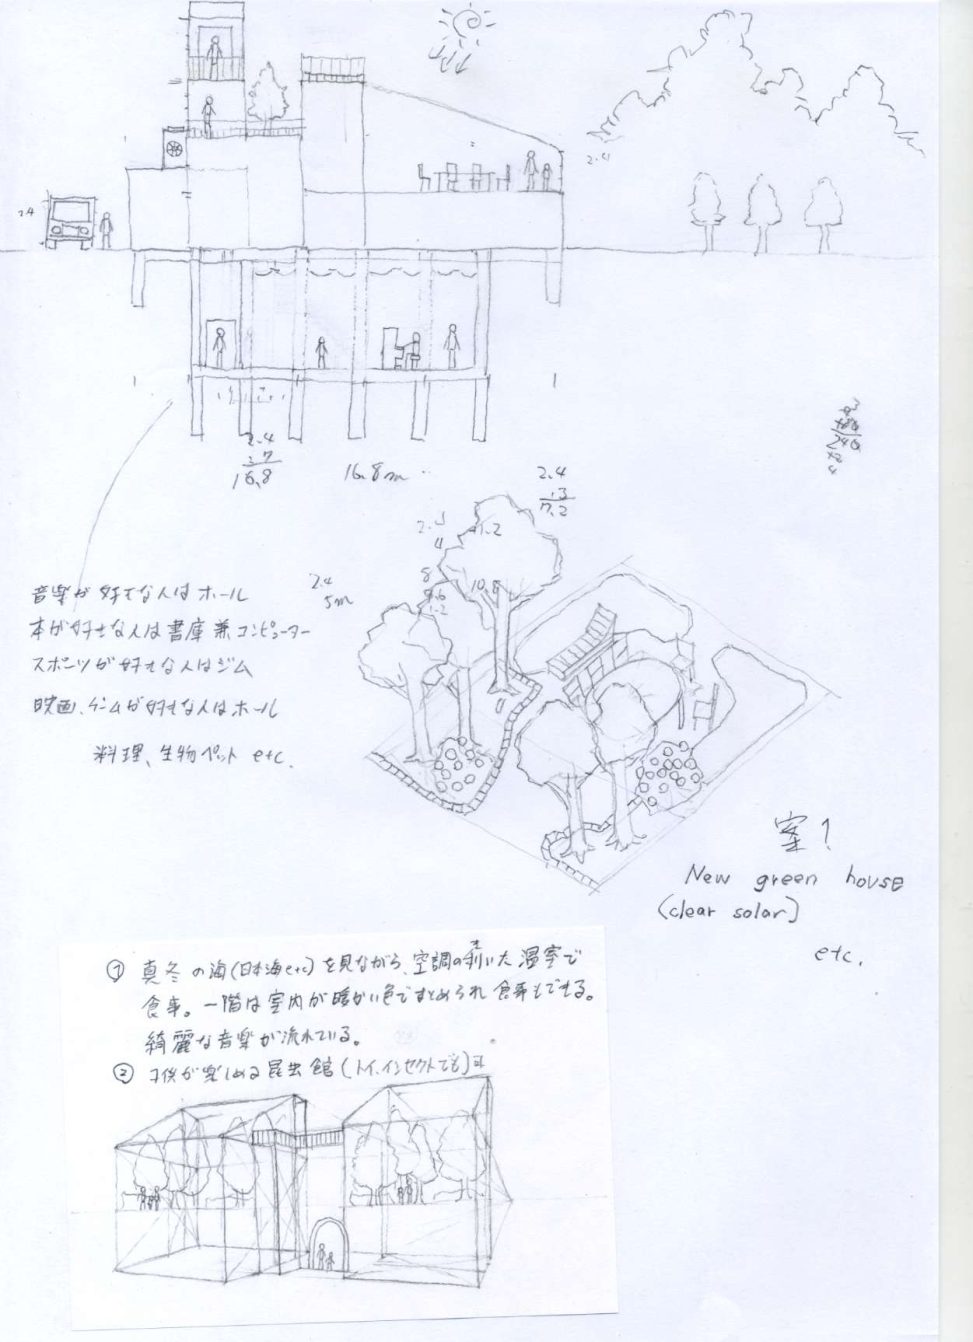 2.4
2.4
2.4
7
16.8
16.8m
2.4
3
7.2
1.2
10.8
2.4
5m
音楽が好きな人はホール
本が好きな人は書庫兼コンピューター
スポーツが好きな人はジム
映画、ゲームが好きな人はホール
料理、生物ペット etc.
New green house
(clear solar)
etc.
① 真冬の海(日本海etc)を見ながら、空調の利いた温室で
食事。一階は室内が暖かい色でまとめられ食事もできる。
綺麗な音楽が流れている。
② 子供が楽しめる昆虫館(トイ、インセクトでも)可